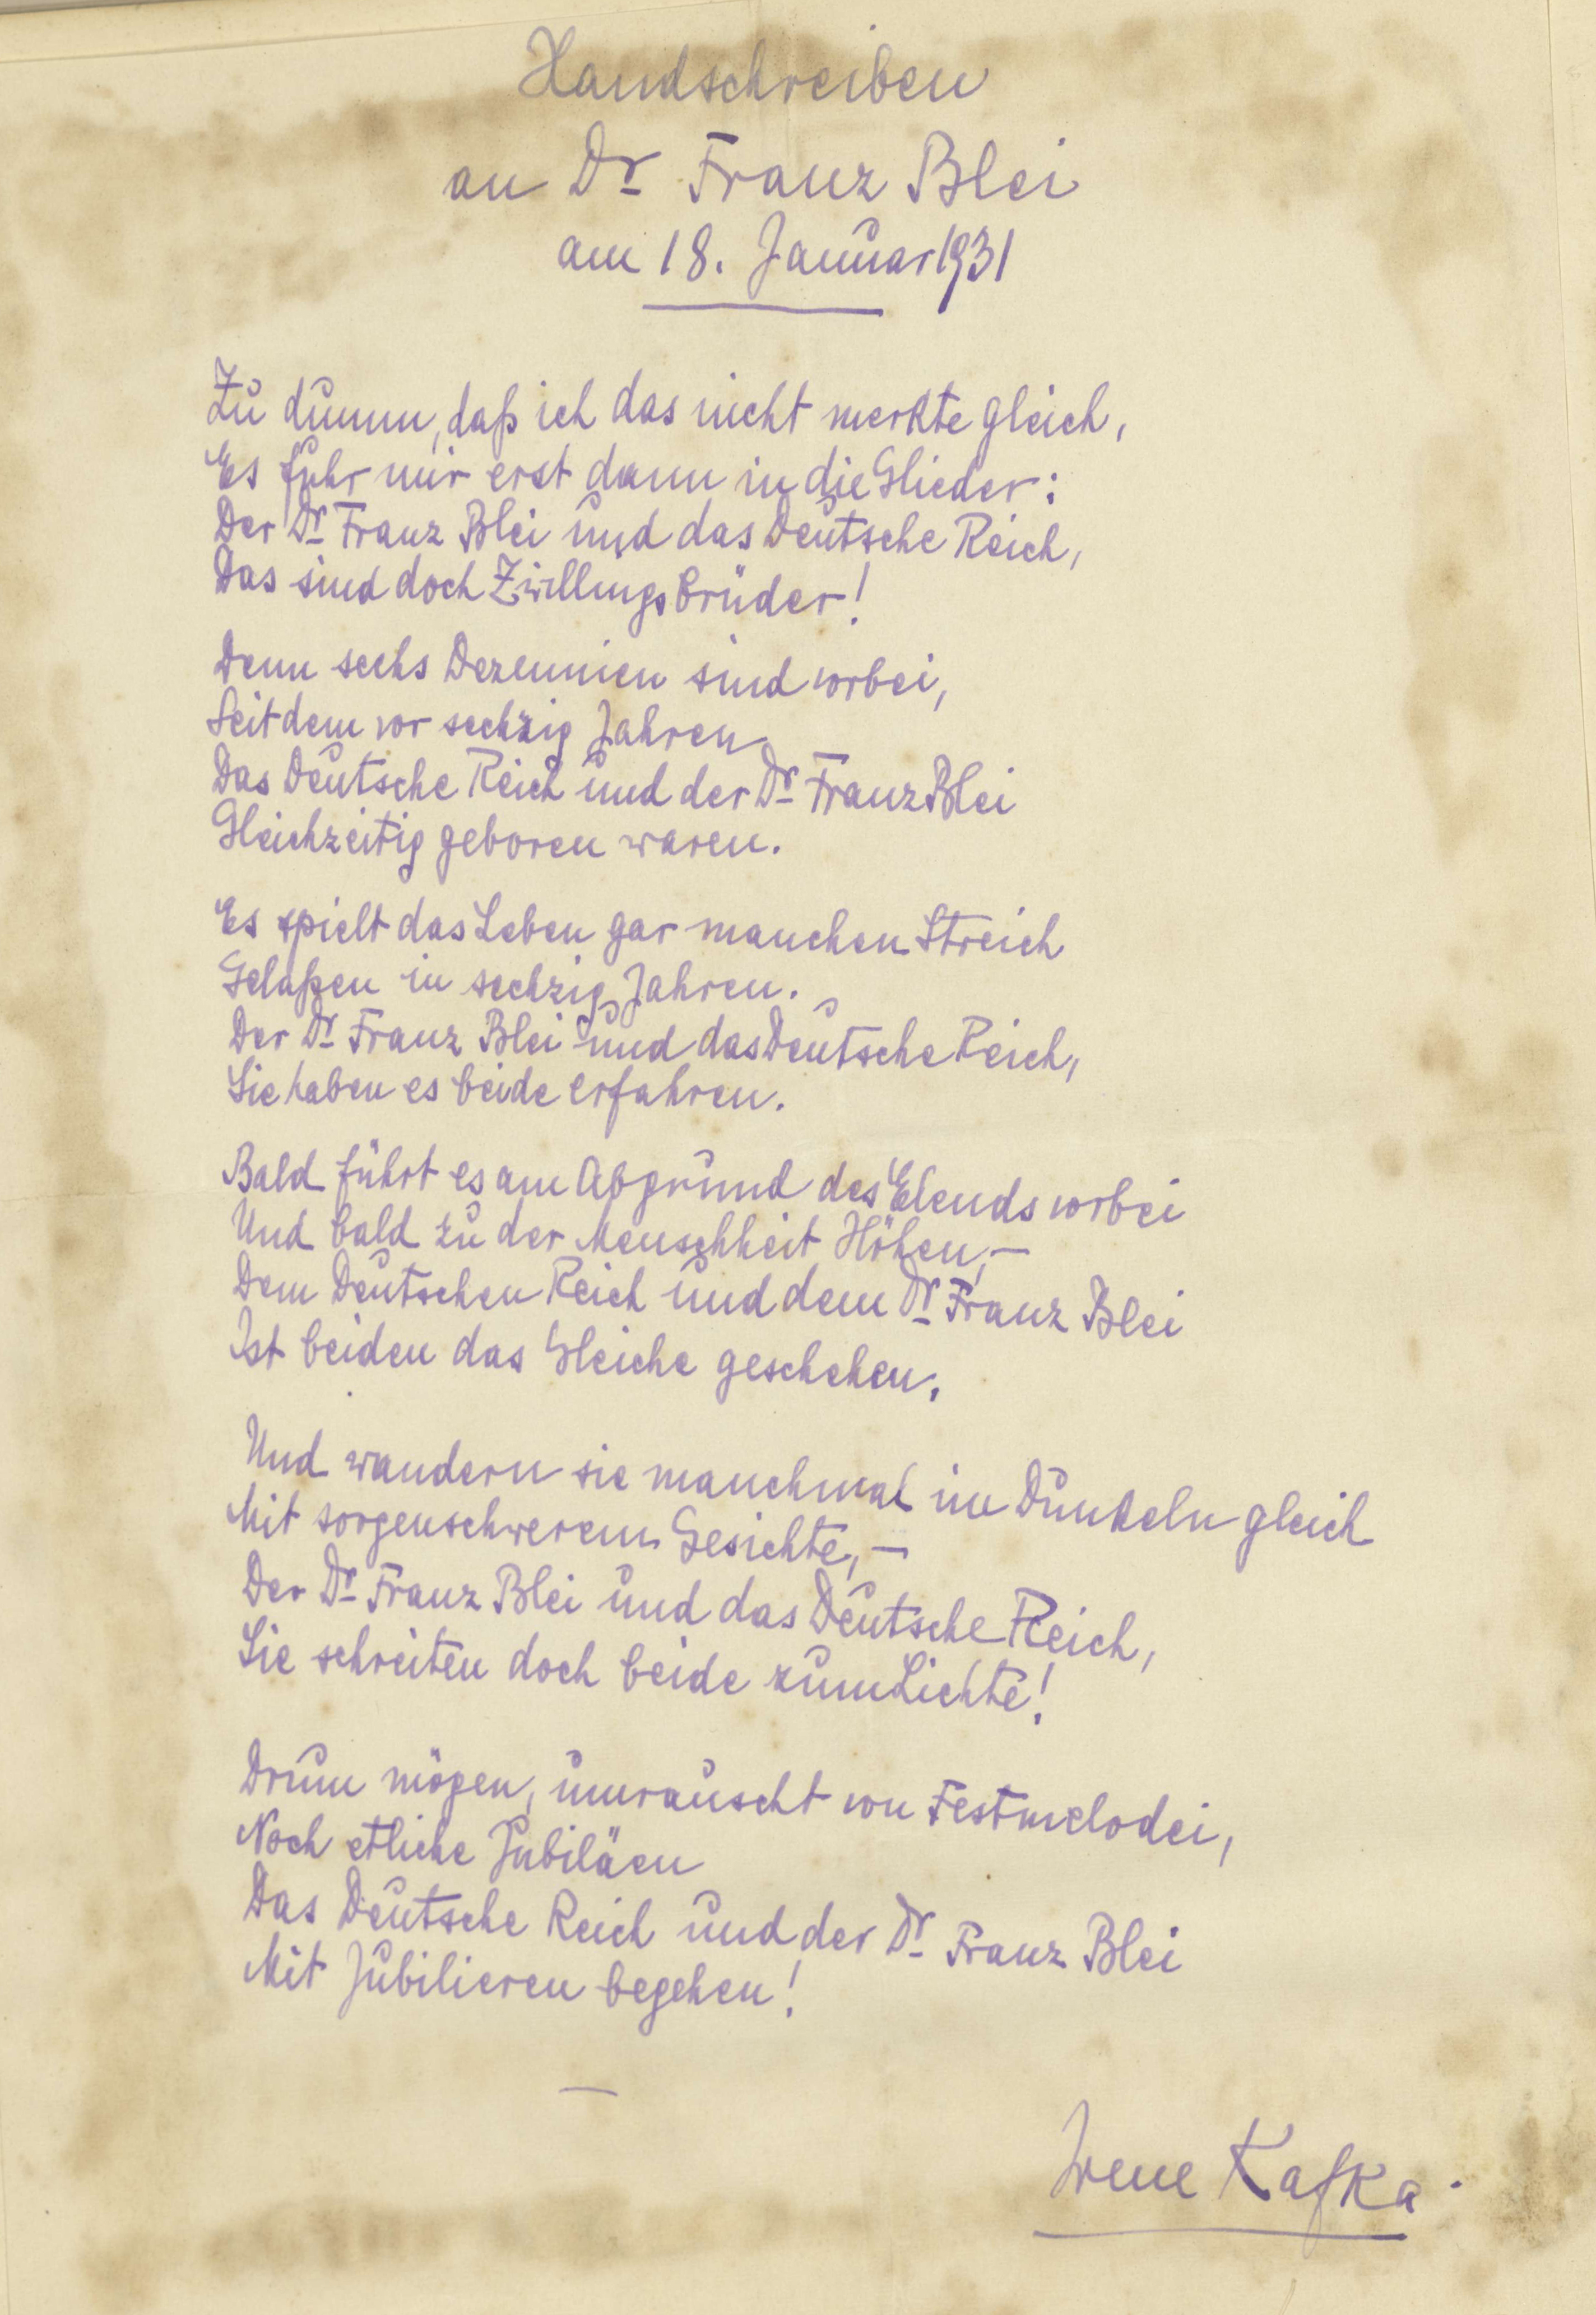 Handschreiben
an Dr Franz Blei
am 18. Januar 1931
Zu dumm, daß ich das nicht merkte gleich,
Es fuhr mir erst dann in die Glieder:
Der Dr Franz Blei und das Deutsche Reich,
Das sind doch Zwillingsbrüder!
Denn sechs Dezennien sind vorbei,
Seitdem vor sechzig Jahren
Das Deutsche Reich und der Dr Franz Blei
Gleichzeitig geboren waren.
Es spielt das Leben gar manchen Streich
Gelaßen in sechzig Jahren.
Der Dr Franz Blei und das Deutsche Reich,
Sie haben es beide erfahren.
Bald führt es am Abgrund des Elends vorbei
Und bald zu der Menschheit Höhen, –
Dem Deutschen Reich und dem Dr Franz Blei
Ist beiden das Gleiche geschehen.
Und wandern sie manchmal im Dunkeln gleich
Mit sorgenschwerem Gesichte, –
Der Dr Franz Blei und das Deutsche Reich,
Sie schreiten doch beide zum Lichte!
Drum mögen, umrauscht von Festmelodei,
Noch etliche Jubiläen
Das Deutsche Reich und der Dr Franz Blei
Mit Jubilieren begehen!
—
Irene Kafka.